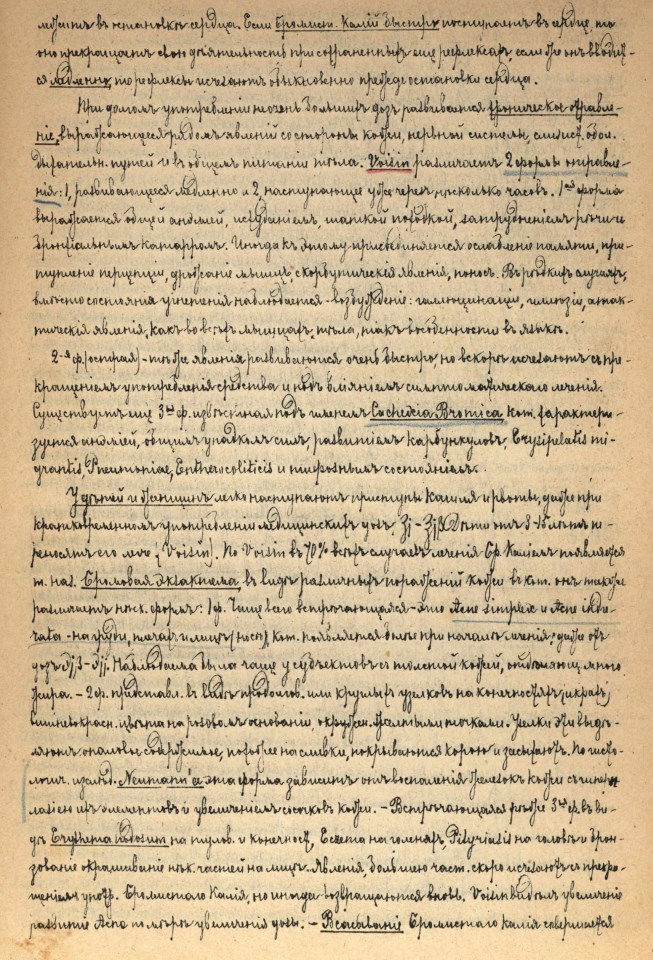 ведетъ къ остановкѣ сердца. Если бромист. калій быстро поступаетъ въ сердце, то
оно прекращаетъ свою дѣятельность при сохраненныхъ еще рефлексахъ, если же онъ вводит-
ся медленно, то рефлексы исчезаютъ обыкновенно прежде остановки сердца.
При долгомъ употребленіи не очень большихъ дозъ развивается хроническое отравле-
ніе, выражающееся рядомъ явленій со стороны кожи, нервной системы, слизист. обол.
дыхательн. путей и въ общемъ питаніи тѣла. Voisin различаетъ 2 формы отравле-
нія: 1, развивающееся медленно и 2, наступающее уже черезъ нѣсколько часовъ. 1ая форма
выражается общей анэміей, исхуданіемъ, шаткой походкой, затрудненіемъ рѣчи и
бронхіальнымъ катарромъ. Иногда къ этому присоединяется ослабленіе памяти, при-
тупленіе перцепціи, дрожаніе мышцъ, скорбутическія явленія, поносъ. Въ рѣдкихъ случаяхъ,
вмѣсто состоянія угнетенія наблюдается возбужденіе: галлюцинаціи, иллюзіи, атак-
тическія явленія, какъ во всѣхъ мышцахъ тѣла, такъ въ особенности въ языкѣ.
2-я ф. (острая) - тѣже явленія развиваются очень быстро, но вскорѣ исчезаютъ съ пре-
кращеніемъ употребленія средства и подъ вліяніемъ симптоматическаго леченія.
Существуетъ еще 3ья ф. извѣстная подъ именемъ Cachexia Bromica, кот. характери-
зуется анэміей, общимъ упадкомъ силъ, развитіемъ карбункуловъ, Erysipelatis mi-
grantis, Pneumoniae, Entherocoliticis и тифознымъ состояніемъ.
У дѣтей и женщинъ легко наступаютъ приступы кашля и рвоты, даже при
кратковременномъ употребленіи медицинскихъ дозъ ʒj - ʒjβ. Дѣти отъ 3-15 лѣтъ пе-
реносятъ его легче (Voisin). По Voisin въ 70% всѣхъ случаевъ леченія бр. каліемъ появляется
т. наз. бромовая эктактема, въ видѣ различныхъ пораженій кожи въ кот. онъ также
различаетъ нѣск. формъ: 1 ф. Чаще всего встрѣчающаяся - это Acne simplex и Acne indu-
rata - на груди, плечахъ и лицѣ (носъ), кот. появляется болѣе при началѣ леченія, даже отъ
дозъ ʒjβ - ʒjj. Наблюдаема была чаще у субъектовъ съ толстой кожей, отдѣляющ. много
жира. - 2 ф. представл. въ видѣ продолгов. или круглыхъ узелковъ на конечностяхъ (икрахъ)
вишневокрасн. цвѣта на розовомъ основаніи, окружен. желтыми точками. Узелки эти выдѣ-
ляютъ опаловое содержимое, похожее на сливки, покрываются корою и засыхаютъ. По гисто-
логич. изслѣд. Neumann'а эта форма зависитъ отъ воспаленія железокъ кожи съ
элементовъ и увеличеніемъ сосочковъ кожи. - Встрѣчающаяся рѣдко 3ья ф. въ ви-
дѣ Erythema nodosum на тулов. и конечност., Eczema на голеняхъ, Pityriasis на головѣ и брон-
зовое окрашиваніе нѣк. частей на лицѣ. Явленія большею част. скоро исчезаютъ съ прекра-
щеніемъ употр. бромистаго калія, но иногда возвращаются вновь. Voisin видѣлъ увеличеніе
развитіе Acne по мѣрѣ увеличенія дозы. - Всасываніе бромистаго калія совершается